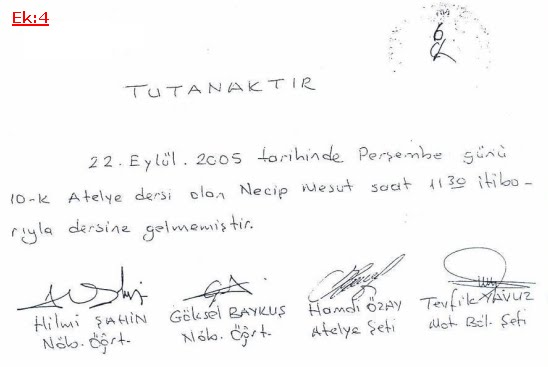 Ek:4
6
TUTANAKTIR
22. Eylül. 2005 tarihinde Perşembe günü
10-K Atelye dersi olan Necip Mesut saat 11³⁰ itiba-
rıyla dersine gelmemiştir.
Hilmi ŞAHİN Göksel BAYKUŞ Hamdi ÖZAY Tevfik YAVUZ
Nöb. Öğrt. Nöb. Öğrt. Atelye Şefi Mot. Böl. Şefi